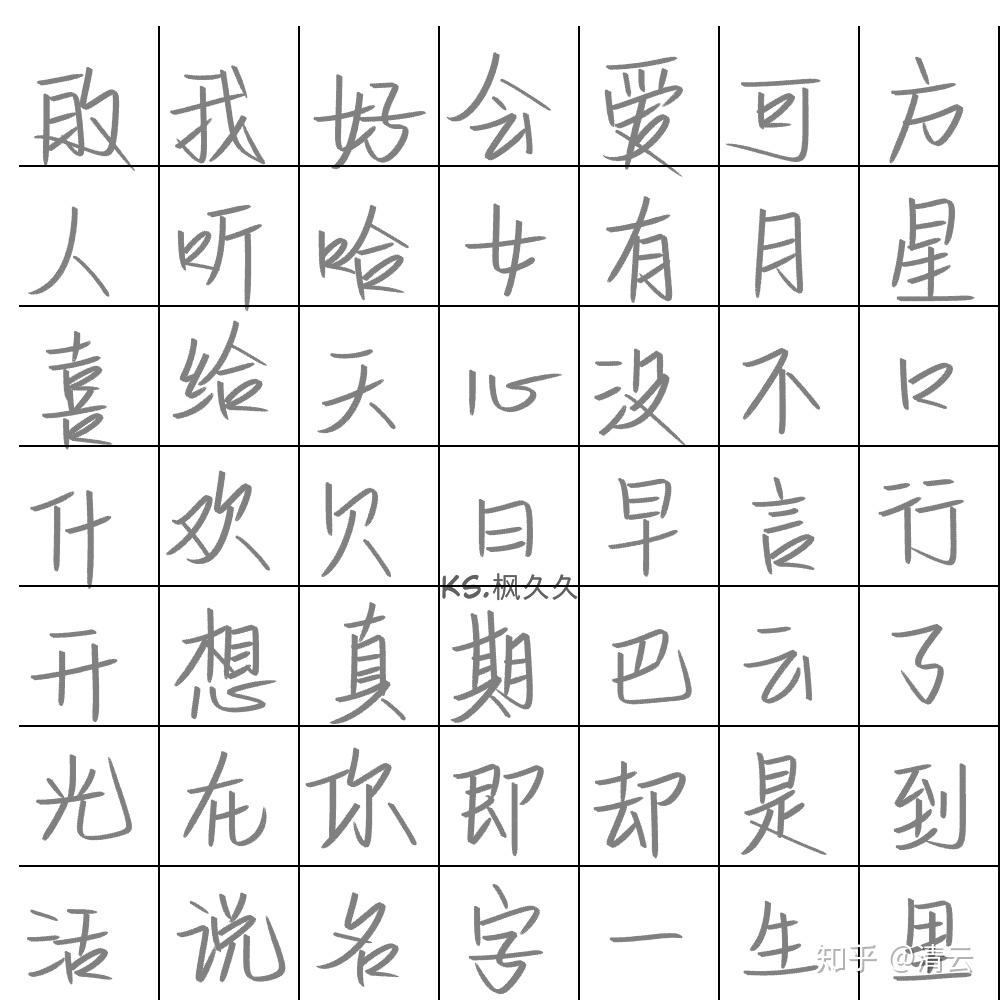 敢我好会爱可方
人听哈女有月星
喜给天心没不口
什欢欠日早言行
KS.枫久久
开想真期巴云了
光在你即却是到
活说名字一生里
知乎 @清云